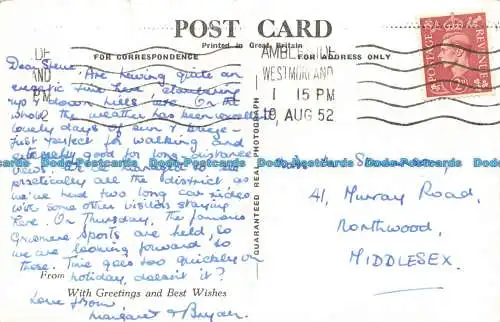 POST CARD
Printed in Great Britain
FOR CORRESPONDENCE
FOR ADDRESS ONLY
AMBLESIDE
WESTMORLAND
1 15 PM
19 AUG 52
POSTAGE
REVENUE
GUARANTEED REAL PHOTOGRAPH
Dear
Are having quite an
time here, clambering
up & down hills etc. On the
whole the weather has been
lovely days of sun & breeze -
just perfect for walking and
good for long distance
views. We've managed to see
practically all the district as
we've had two long car rides
with some other visitors staying
here. On Thursday, the famous
Grasmere Sports are held, so
we are looking forward to
those. Time goes too quickly on
From holiday, doesn't it?
With Greetings and Best Wishes
Love from
Margaret &
41, Murray Road,
Northwood,
MIDDLESEX.